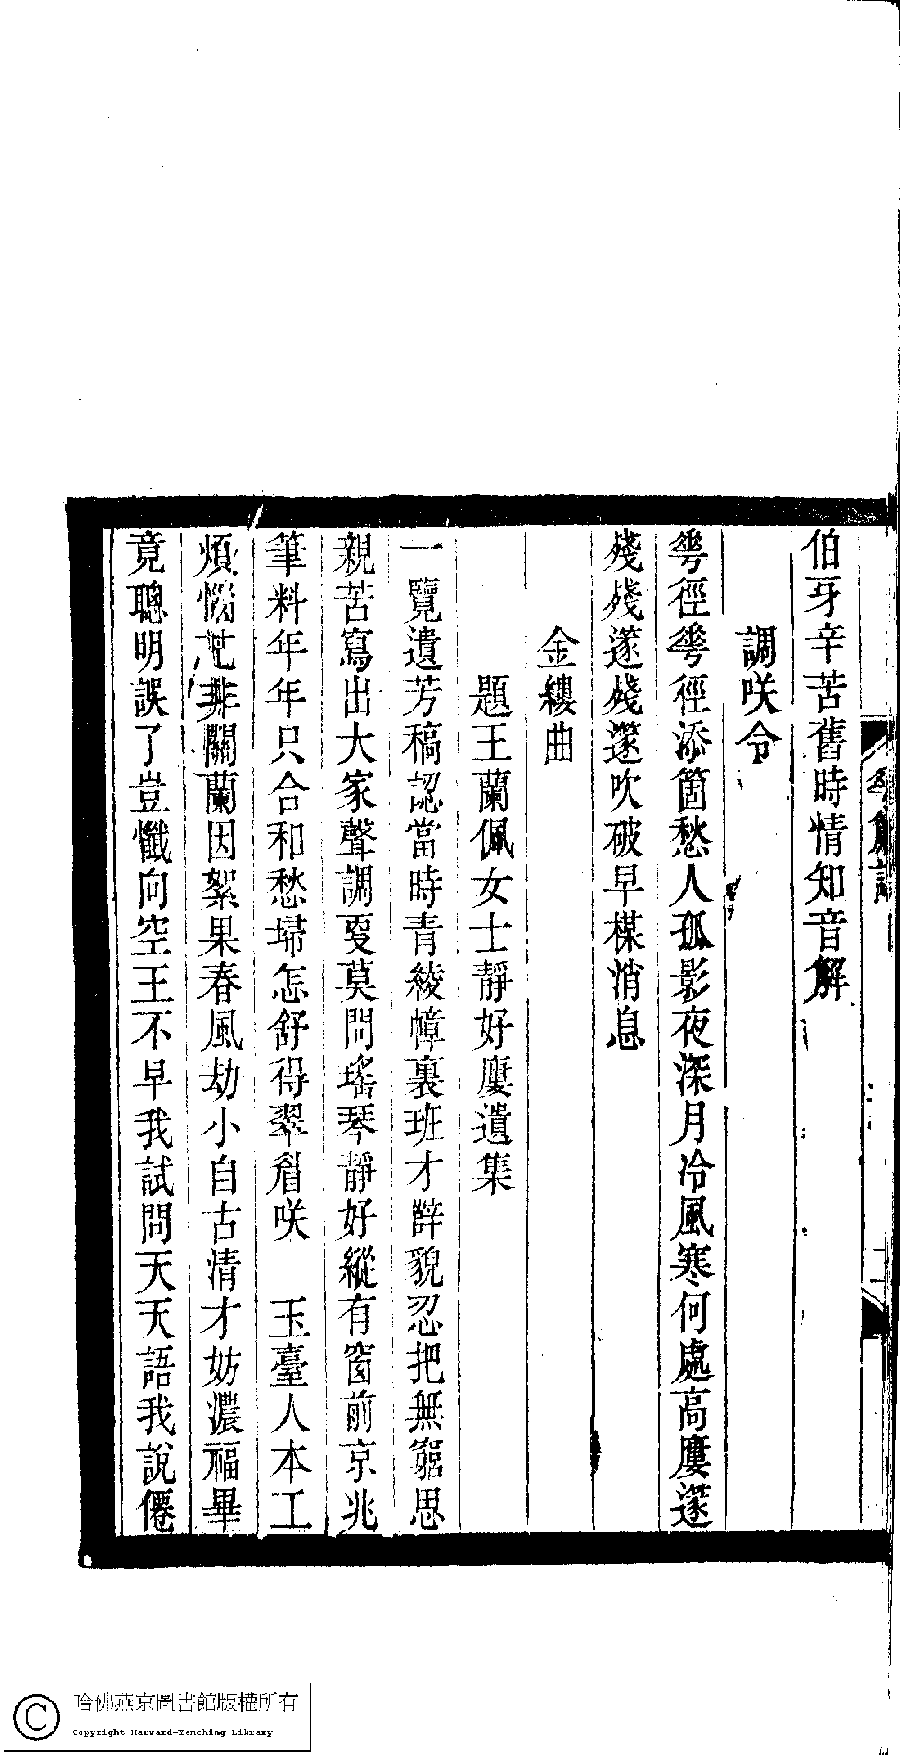 伯牙辛苦舊時情知音解
調咲令
甹徑甹徑添箇愁人孤影夜深月冷風寒何處高廔篴
殘殘篴殘篴吹破早楳消息
金縷曲
題王蘭佩女士靜好廔遺集
一覽遺芳稿認當時青綾幛裏班才辥貌忍把無窮思
親苦寫出大家聲調更莫問瑤琴靜好縱有窗前京兆
筆料年年只合和愁埽怎舒得翠眉咲　玉臺人本工
煩惱並非關蘭因絮果春風劫小自古清才妨濃福畢
竟聰明誤了豈懺向空王不早我試問天天語我說僊
哈佛燕京圖書館版權所有
Copyright Harvard-Yenching Library